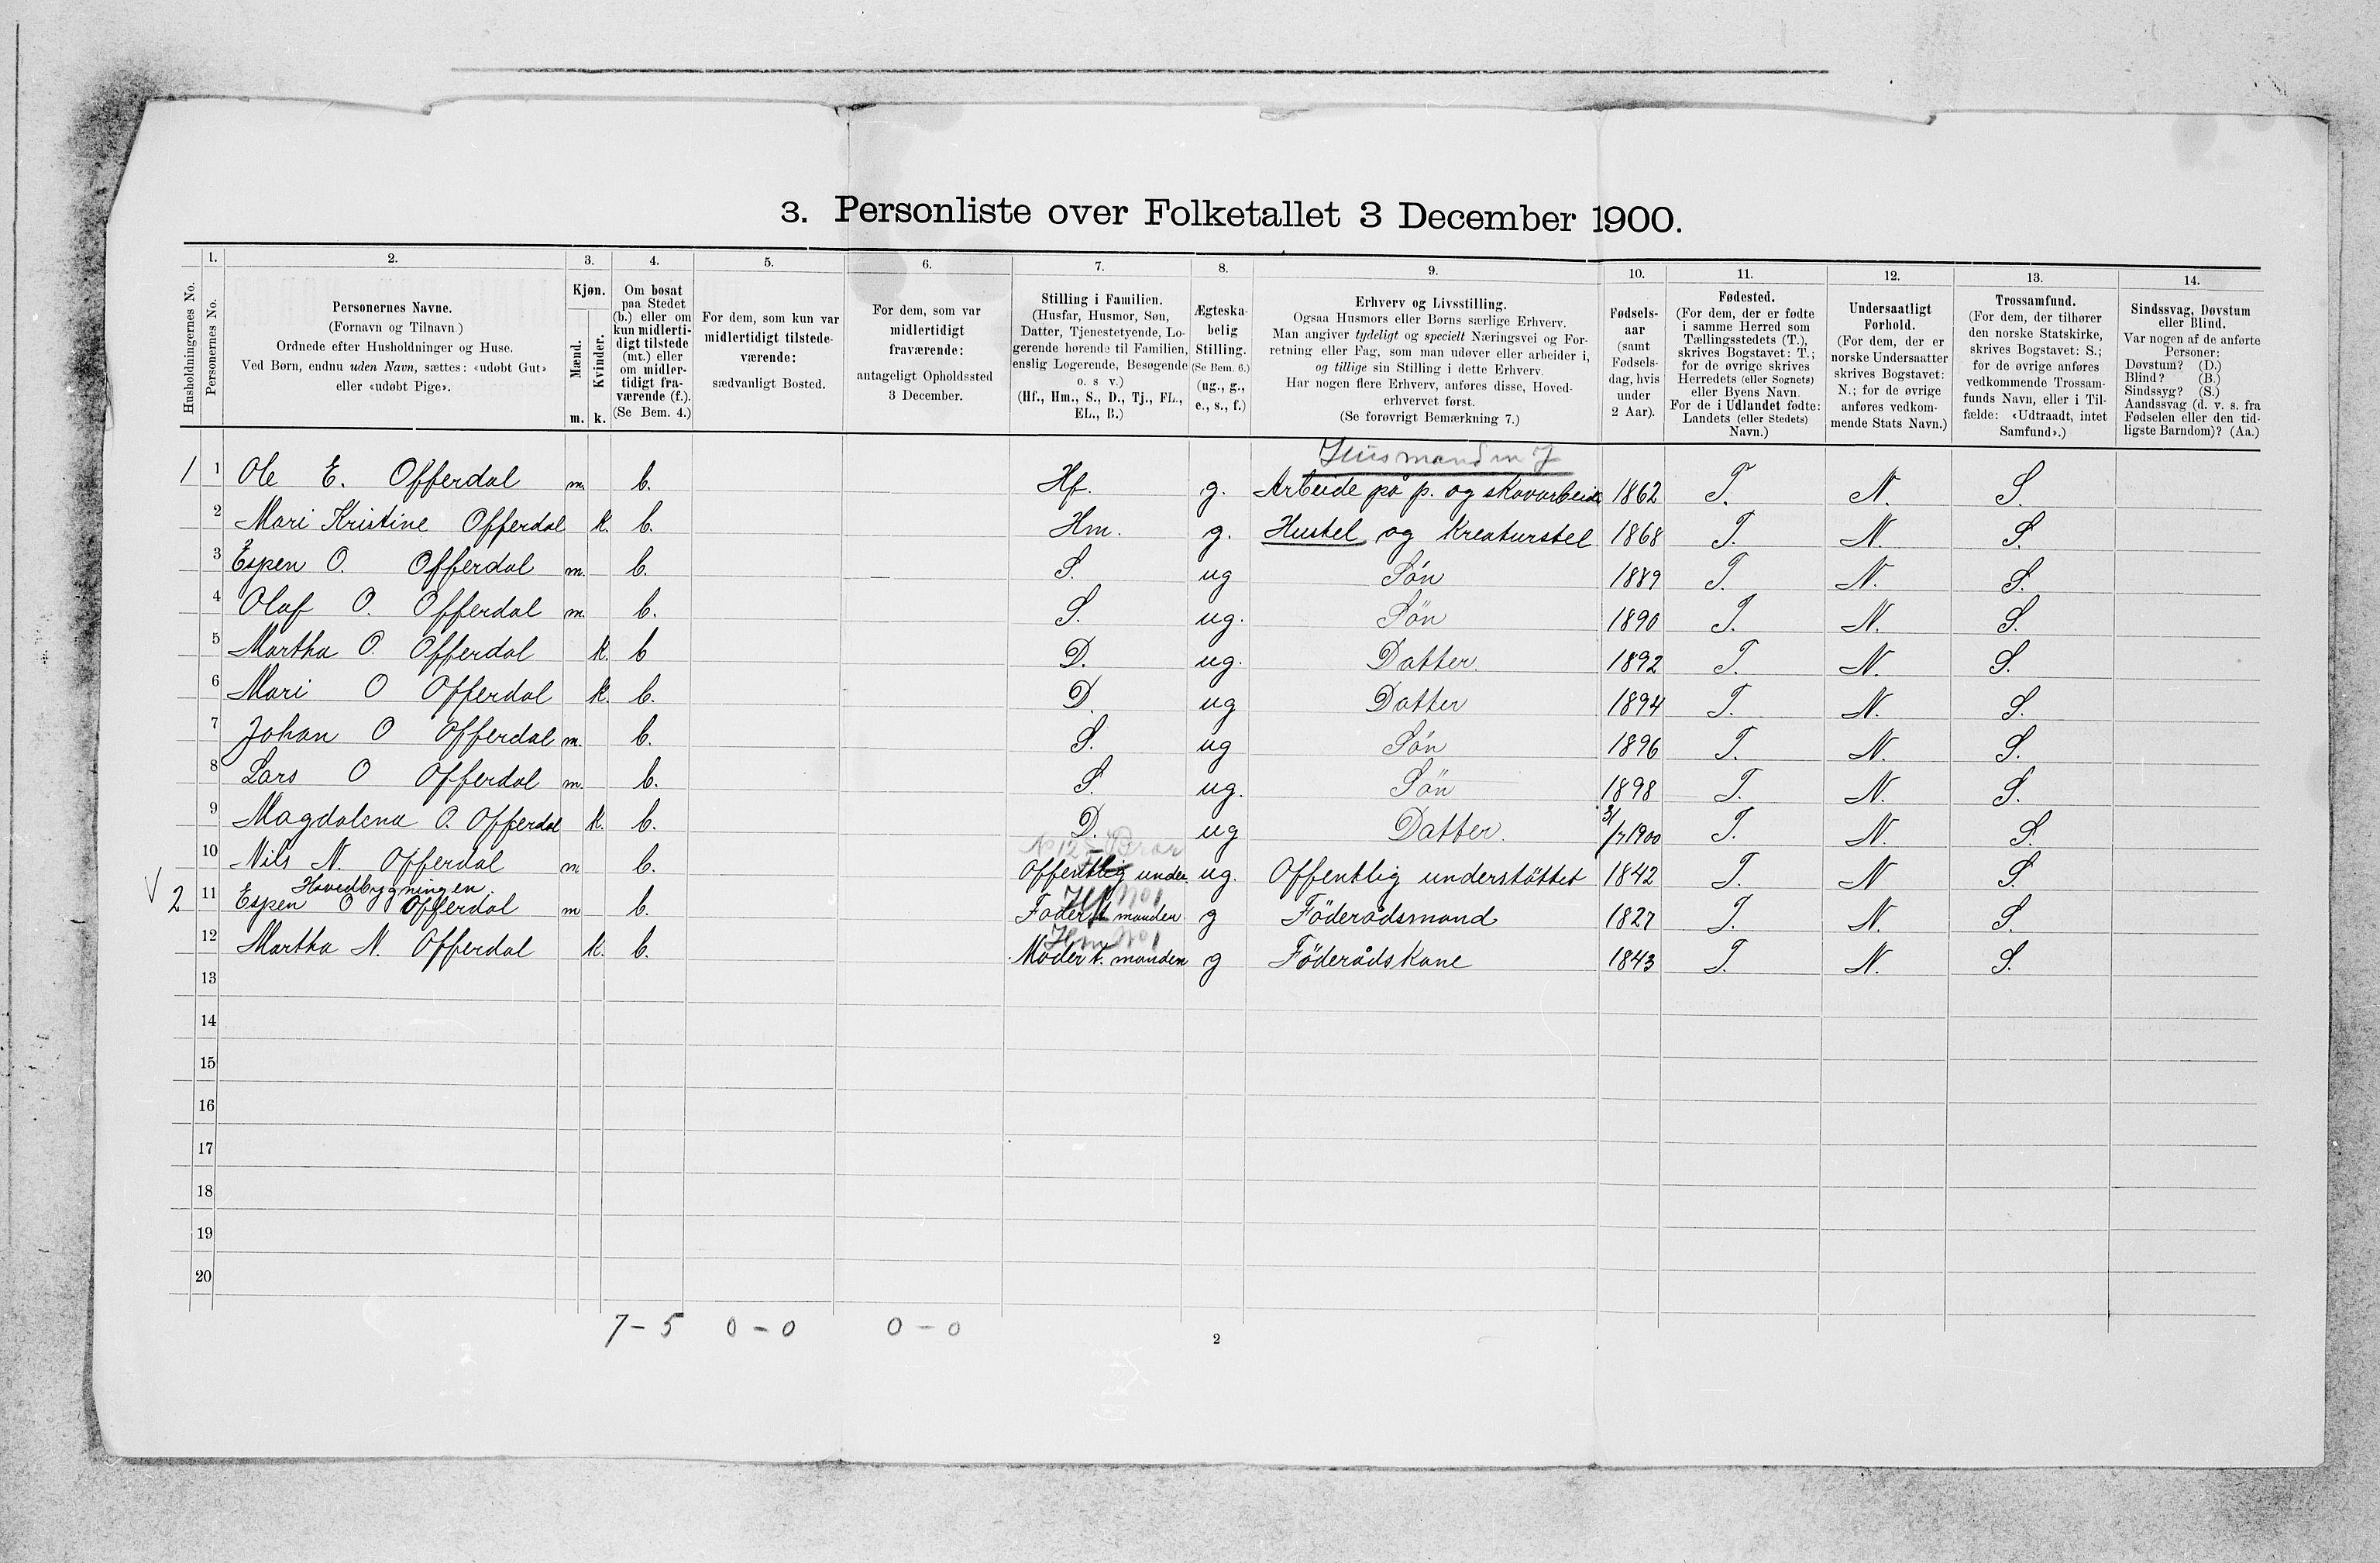 3. Personliste over Folketallet 3 December 1900.
1. 2. 3. 4. 5. 6. 7. 8. 9. 10. 11. 12. 13. 14.
Husholdningernes No.
Personernes No.
Personernes Navne.
(Fornavn og Tilnavn.)
Ordnede efter Husholdninger og Huse.
Ved Børn, endnu uden Navn, sættes: «udøbt Gut»
eller «udøbt Pige».
Kjøn.
Mænd.
Kvinder.
m. k.
Om bosat
paa Stedet
(b.) eller om
kun midlerti-
digt tilstede
(mt.) eller
om midler-
tidigt fra-
værende (f.).
(Se Bem. 4.)
For dem, som kun var
midlertidigt tilstede-
værende:
sædvanligt Bosted.
For dem, som var
midlertidigt
fraværende:
antageligt Opholdssted
3 December.
Stilling i Familien.
(Husfar, Husmor, Søn,
Datter, Tjenestetyende, Lo-
gerende hørende til Familien,
enslig Logerende, Besøgende
o. s v.)
(Hf., Hm., S., D., Tj., FL.,
EL., B.)
Ægteska-
belig
Stilling.
(Se Bem. 6.)
(ug., g.,
e., s., f.)
Erhverv og Livsstilling.
Ogsaa Husmors eller Børns særlige Erhverv.
Man angiver tydeligt og specielt Næringsvei og For-
retning eller Fag, som man udøver eller arbeider i,
og tillige sin Stilling i dette Erhverv.
Har nogen flere Erhverv, anføres disse, Hoved-
erhvervet først.
(Se forøvrigt Bemærkning 7.)
Fødsels-
aar
(samt
Fødsels-
dag, hvis
under
2 Aar).
Fødested.
(For dem, der er fødte
i samme Herred som
Tællingsstedets (T.),
skrives Bogstavet: T.;
for de øvrige skrives
Herredets (eller Sognets)
eller Byens Navn.
For de i Udlandet fødte:
Landets (eller Stedets)
Navn.)
Undersaatligt
Forhold.
(For dem, der er
norske Undersaatter
skrives Bogstavet:
N.; for de øvrige
anføres vedkom-
mende Stats Navn.)
Trossamfund.
(For dem, der tilhører
den norske Statskirke,
skrives Bogstavet: S.;
for de øvrige anføres
vedkommende Trossam-
funds Navn, eller i Til-
fælde: «Udtraadt, intet
Samfund».)
Sindssvag, Døvstum
eller Blind.
Var nogen af de anførte
Personer:
Døvstum? (D.)
Blind? (B.)
Sindssyg? (S.)
Aandssvag (d. v. s. fra
Fødselen eller den tid-
ligste Barndom)? (Aa.)
Husmand m J
1 1 Ole E. Offerdal m. b. Hf. g. Arbeide på p. og skovarbeide 1862 T. N. S.
2 Mari Kristine Offerdal k. b. Hm. g. Hustel og Kreaturstel 1868 T. N. S.
3 Espen O. Offerdal m. b. S. ug Sön 1889 T. N. S.
4 Olaf O. Offerdal m. b. S. ug. Sön 1890 T. N. S.
5 Martha O. Offerdal k. b D. ug. Datter. 1892 T. N. S.
6 Mari O Offerdal k. b. D. ug Datter 1894 T. N. S.
7 Johan O Offerdal m. b. S. ug Sön 1896 T. N. S.
8 Lars O Offerdal m. b. S. ug. Sön 1898 T. N. S.
9 Magdalena O. Offerdal k. b. D. ug Datter. 31/7 1900 T. N. S.
No 12s Bror
10 Nils N. Offerdal m b. Offentlig under. ug. Offentlig understöttet 1842 T. N S.
Hovedbygningen. Hf No 1
2 11 Espen O Offerdal m b. Fader t. manden g Föderådsmand 1827 T. N. S.
Hm No 1
12 Martha N. Offerdal k. b. Moder t. manden g Föderådskone 1843 T. N. S.
13
14
15
16
17
18
19
20
7 - 5 0 - 0 0 - 0
2